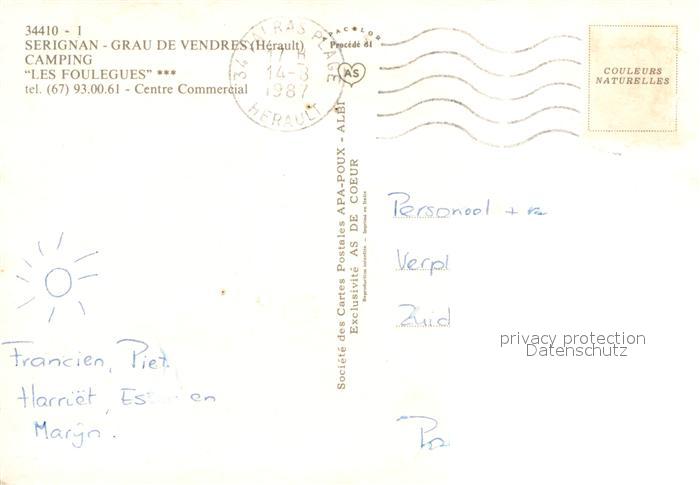 34410 - 1
SERIGNAN - GRAU DE VENDRES (Hérault)
CAMPING
"LES FOULEGUES" ***
tel. (67) 93.00.61 - Centre Commercial
34 RAS PLAGE
17 H
14-8
1987
HERAULT
PACOLOR
Procédé di
AS
COULEURS
NATURELLES
Société des Cartes Postales APA-POUX - ALBI
Exclusivité AS DE COEUR
Reproduction interdite - Imprimé en Italie
Personeel +
Verpl
Zuid
privacy protection
Datenschutz
Francien, Piet
Harriët, en
Marijn.